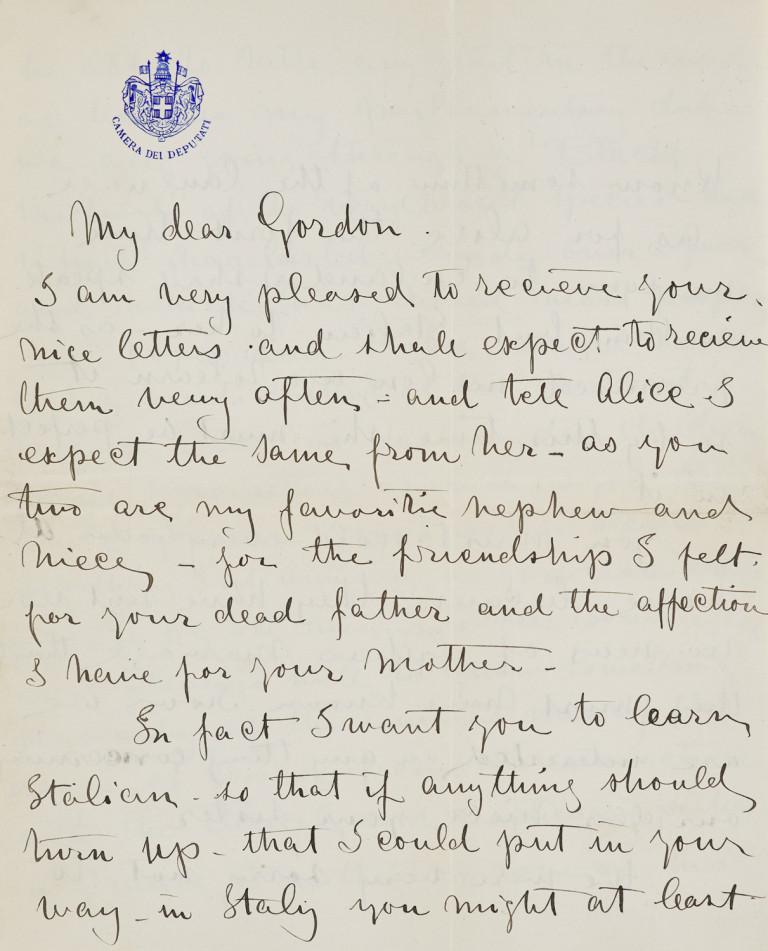 CAMERA DEI DEPUTATI
My dear Gordon.
I am very pleased to recieve your
nice letters and shall expect to recieve
them very often - and tell Alice I
expect the same from her - as you
two are my favorite nephew and
niece, - for the friendship I felt
for your dead father and the affection
I have for your mother -
In fact I want you to learn
Italian - so that if anything should
turn up - that I could put in your
way - in Italy you might at least